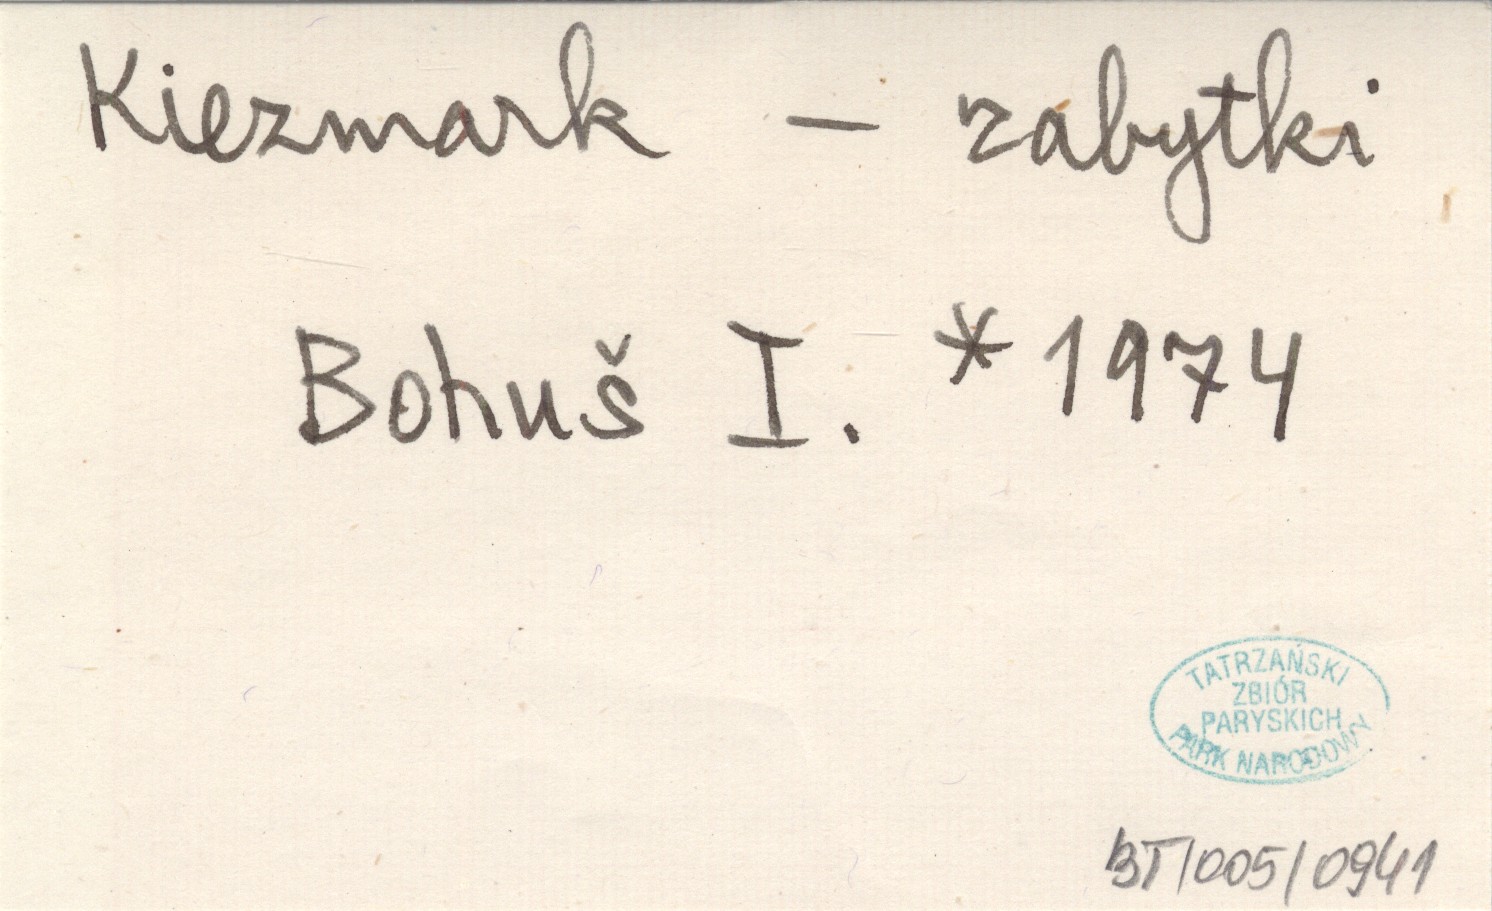 Kiezmark – zabytki
Bohuš I. * 1974
TATRZAŃSKI
ZBIÓR
PARYSKICH
PARK NARODOWY
BT/005/0941